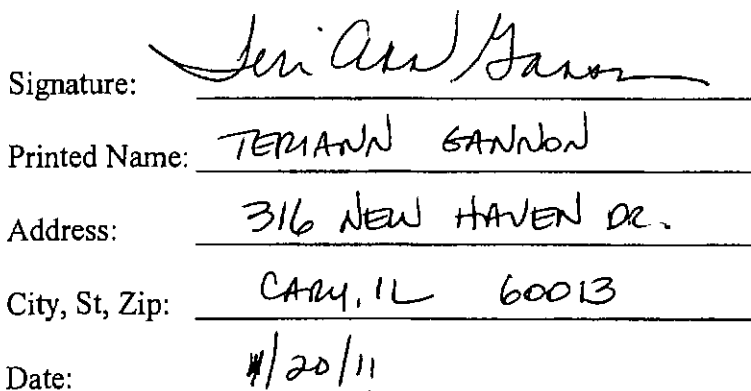 Signature: Teri Ann Gannon
Printed Name: TERIANN GANNON
Address: 316 NEW HAVEN DR.
City, St, Zip: CARY, IL 60013
Date: /20/11